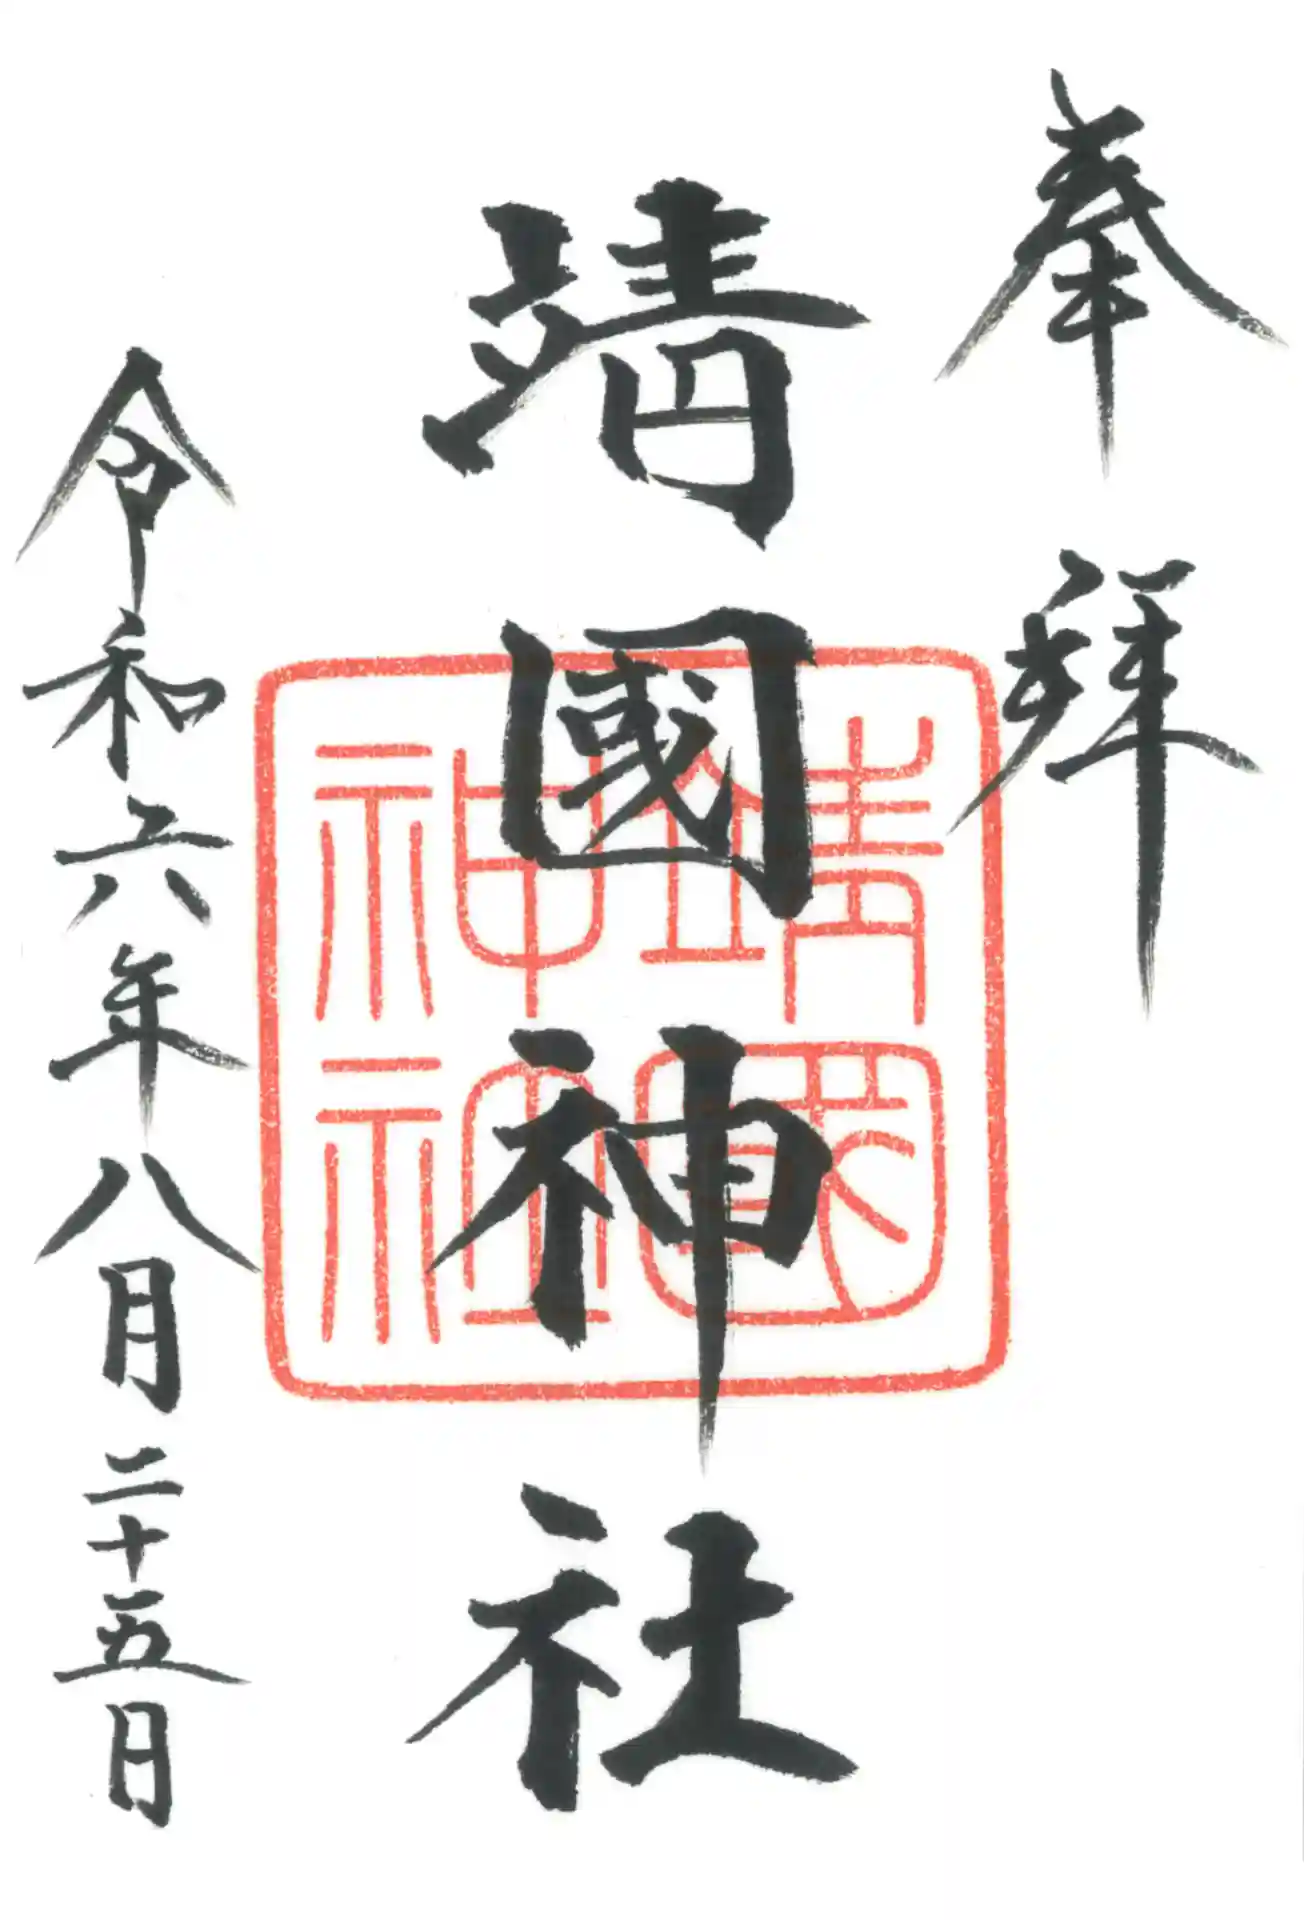 奉拜
靖國神社
靖國
神社
令和六年八月二十五日